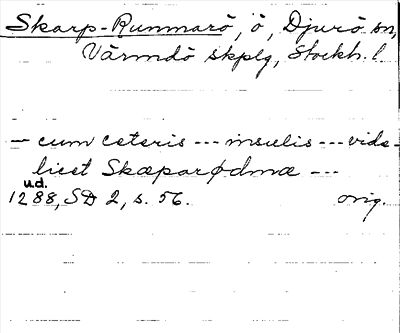 Skarp-Runmarö, ö, Djurö sn,
Värmdö skplg, Stockh. l.
— cum ceteris --- insulis --- vide-
licet Skæparødmæ ---
u.d.
1288, SD 2, s. 56. orig.